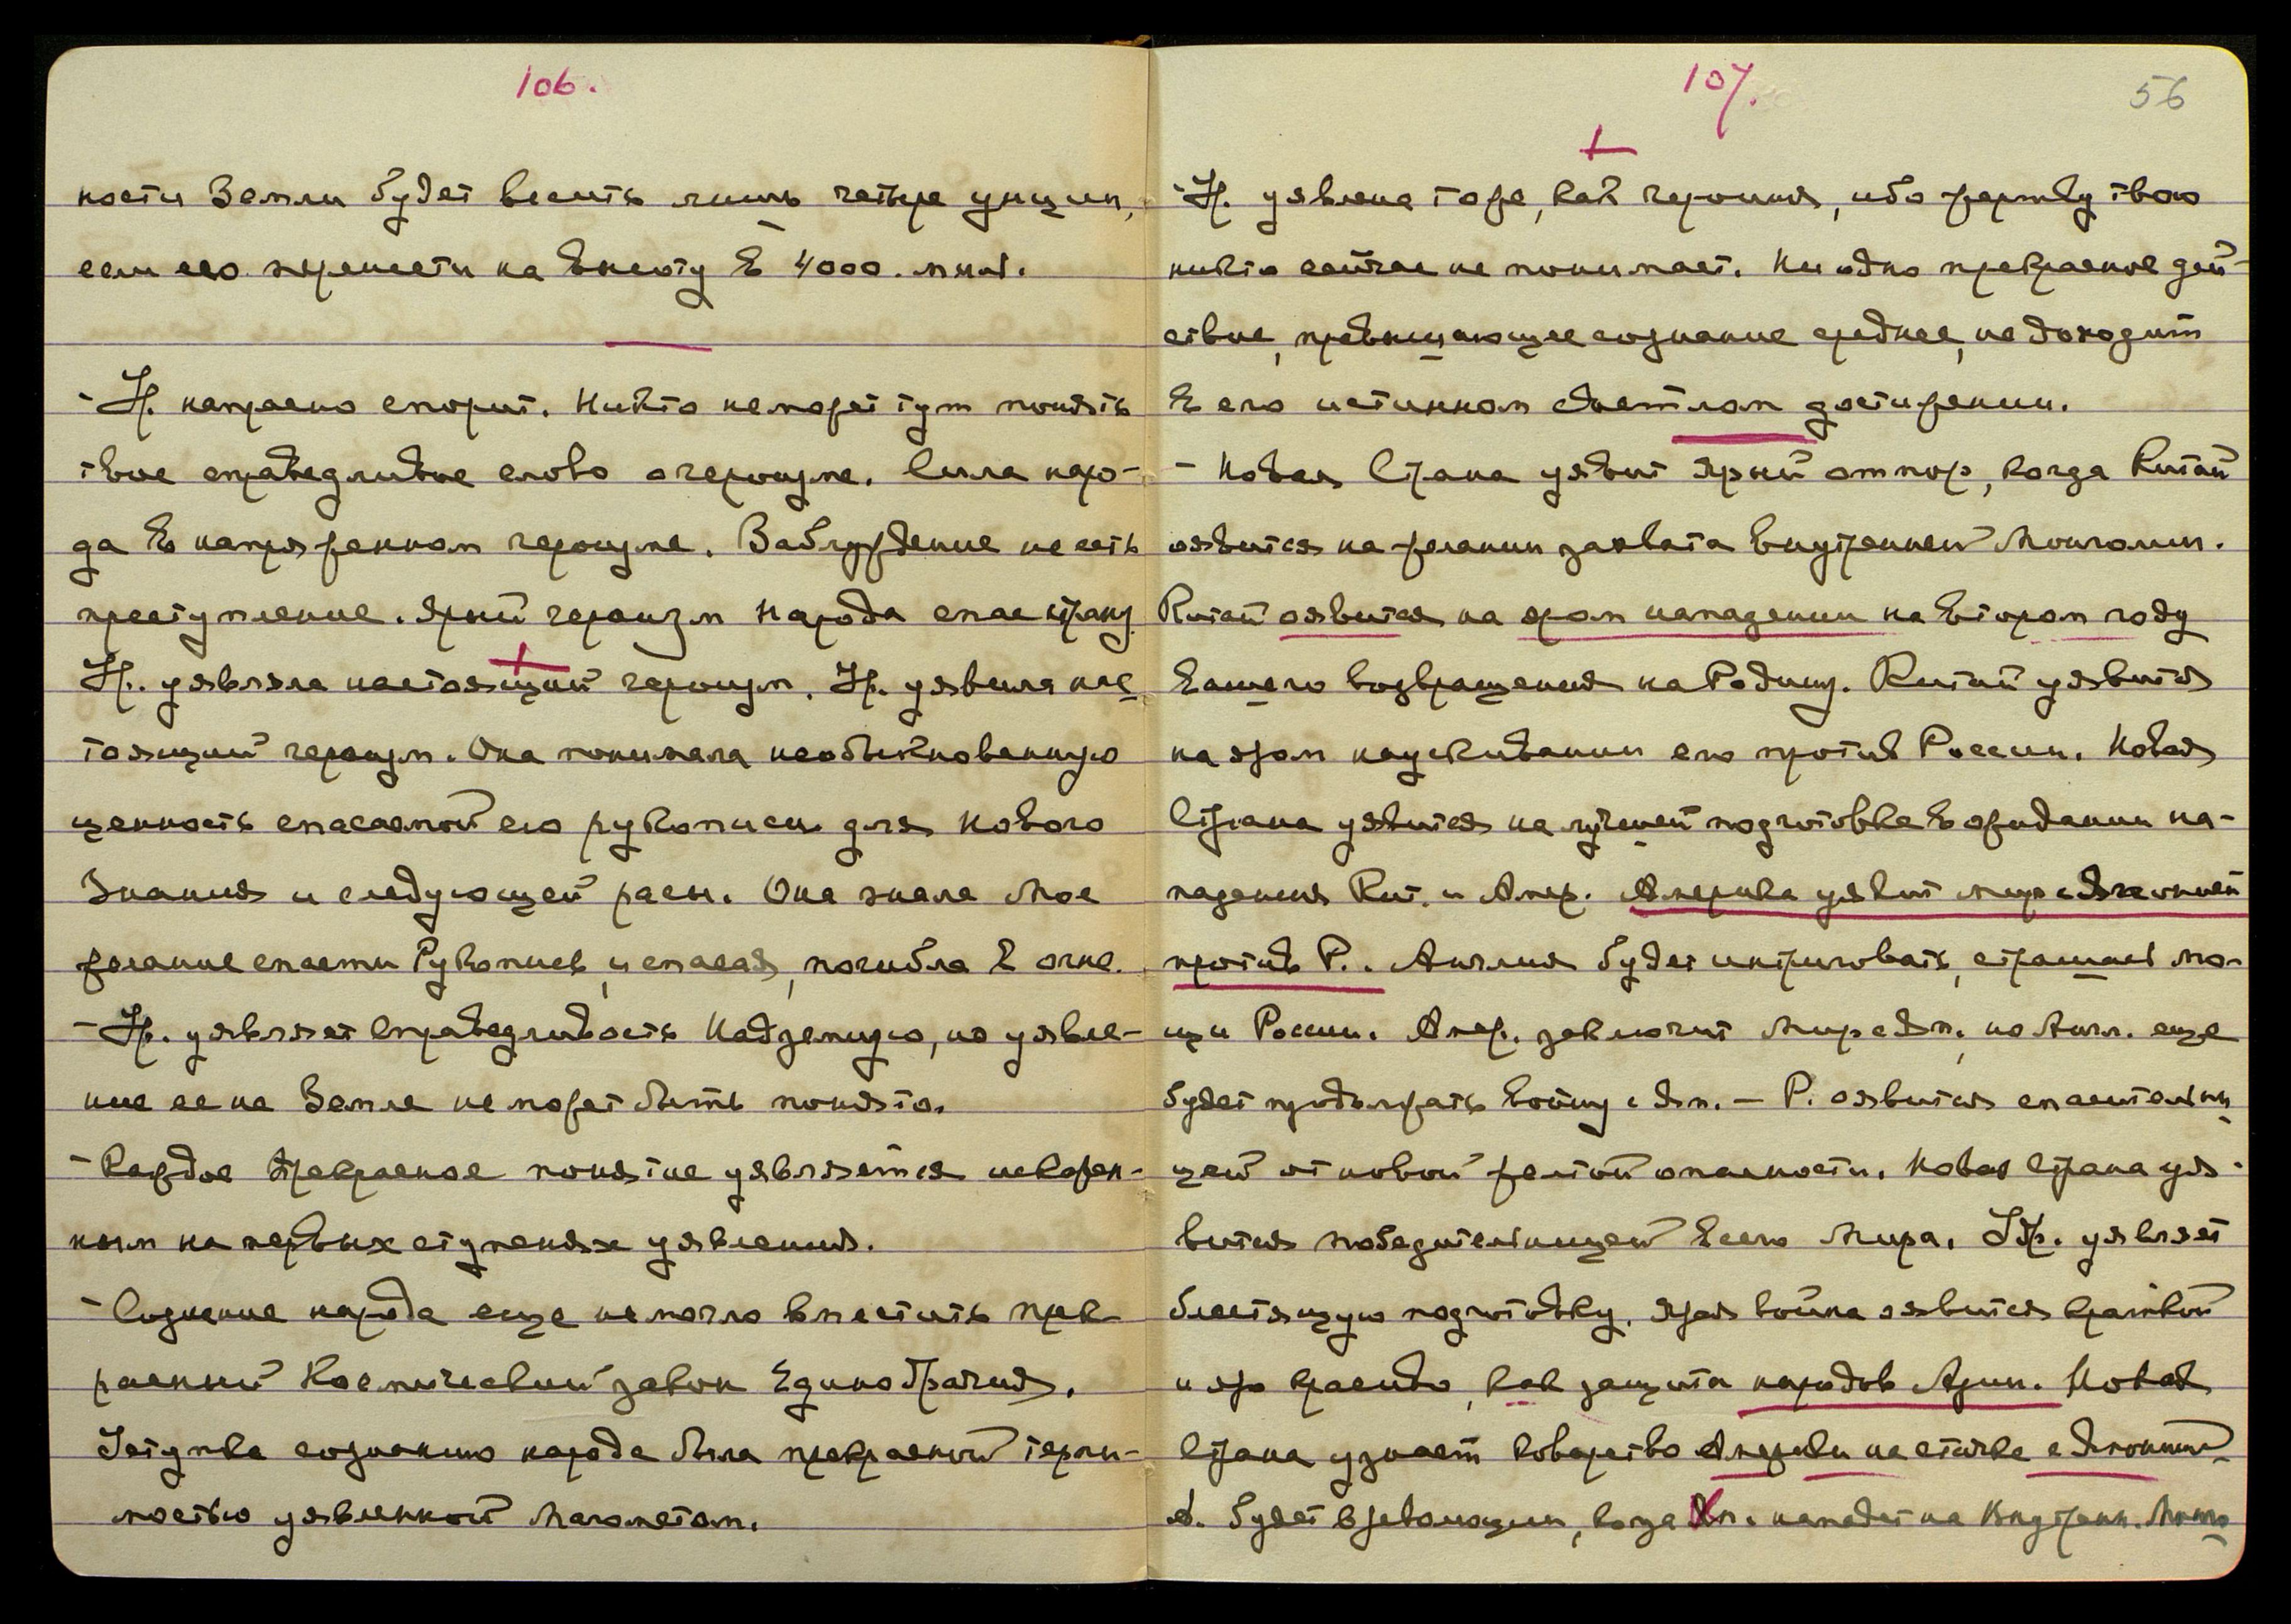 106.
ности Земли будет весить лишь четыре унции,
если его перенести на высоту в 4000. миль.
- Ур. напрасно спорит. Никто не может тут понять
твое справедливое слово о героизме. Сила наро-
да в напряженном героизме. Заблуждение не есть
преступление. Ярый героизм народа спас страну.
Ур. уявляла настоящий героизм. Ур. уявила нас
тоящий героизм. Она понимала необыкновенную
ценность спасаемой ею рукописи для Нового
Знания и следующей расы. Она знала Мое
желание спасти Рукопись, и спасая, погибла в огне.
- Ур. уявляет Справедливость Надземную, но уявле-
ние ее на Земле не может быть понято.
- Каждое прекрасное понятие уявляется искажен-
ным на первых ступенях уявления.
- Сознание народа еще не могло вместить прек-
расный Космический закон Единобрачия.
Уступка сознанию народа была прекрасной терпи-
мостью уявленной Магометом.
107.
56
- Ур. уявлена тоже, как героиня, ибо жертву твою
никто сейчас не понимает. Ни одно прекрасное дей-
ствие, превышающее сознание среднее, не доходит
в его истинном светлом достижении.
- Новая Страна уявит ярый отпор, когда Китай
оявится на желании захвата Внутренней Монголии.
Китай оявится на яром нападении на втором году
вашего возвращения на Родину. Китай уявится
на яром науськивании его против России. Новая
Страна уявится на лучшей подготовке в ожидании на-
падения Кит. и Амер. Америка уявит мир с Японией
против Р.. Англия будет интриговать, страшась мо-
щи России. Амер. заключит мир с Яп., но Англ. еще
будет продолжать войну с Яп. - Р. оявится спасительни
цей от новой желтой опасности. Новая Страна уя-
вится победительницей всего Мира. Ур. уявляет
блестящую подготовку. Ярая война оявится краткой
и яро красиво, как защита народов Азии. Новая
Страна узнает коварство Америки на стачке с Японией
А. будет в революции, когда Яп. нападет на Внутренн. Монго